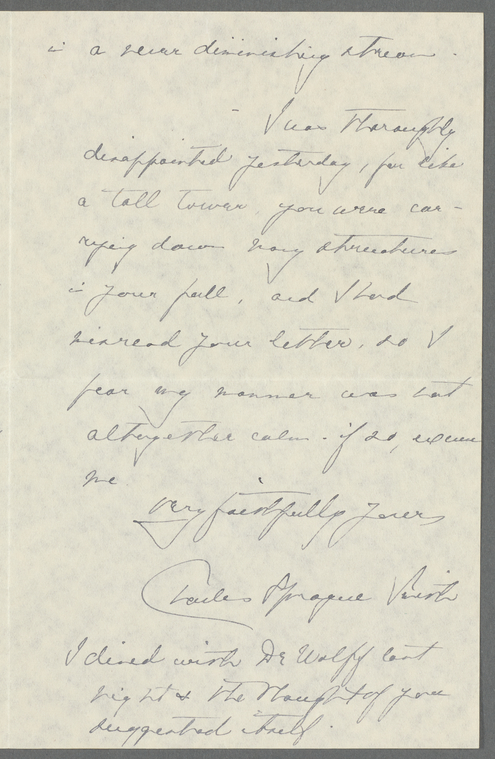 in a never diminishing stream.
I was thoroughly
disappointed yesterday, for like
a tall tower you were car-
rying down many structures
in your fall, and I had
misread your letter, so I
fear my manner was not
altogether calm. if so, excuse
me.
Very faithfully yours
Charles Sprague Smith
I dined with Dr Wolff last
night & the thought of you
suggested itself.